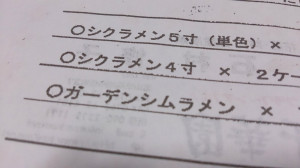 ○シクラメン5寸(単色) ×
○シクラメン4寸 × 2ケ
○ガーデンシムラメン ×